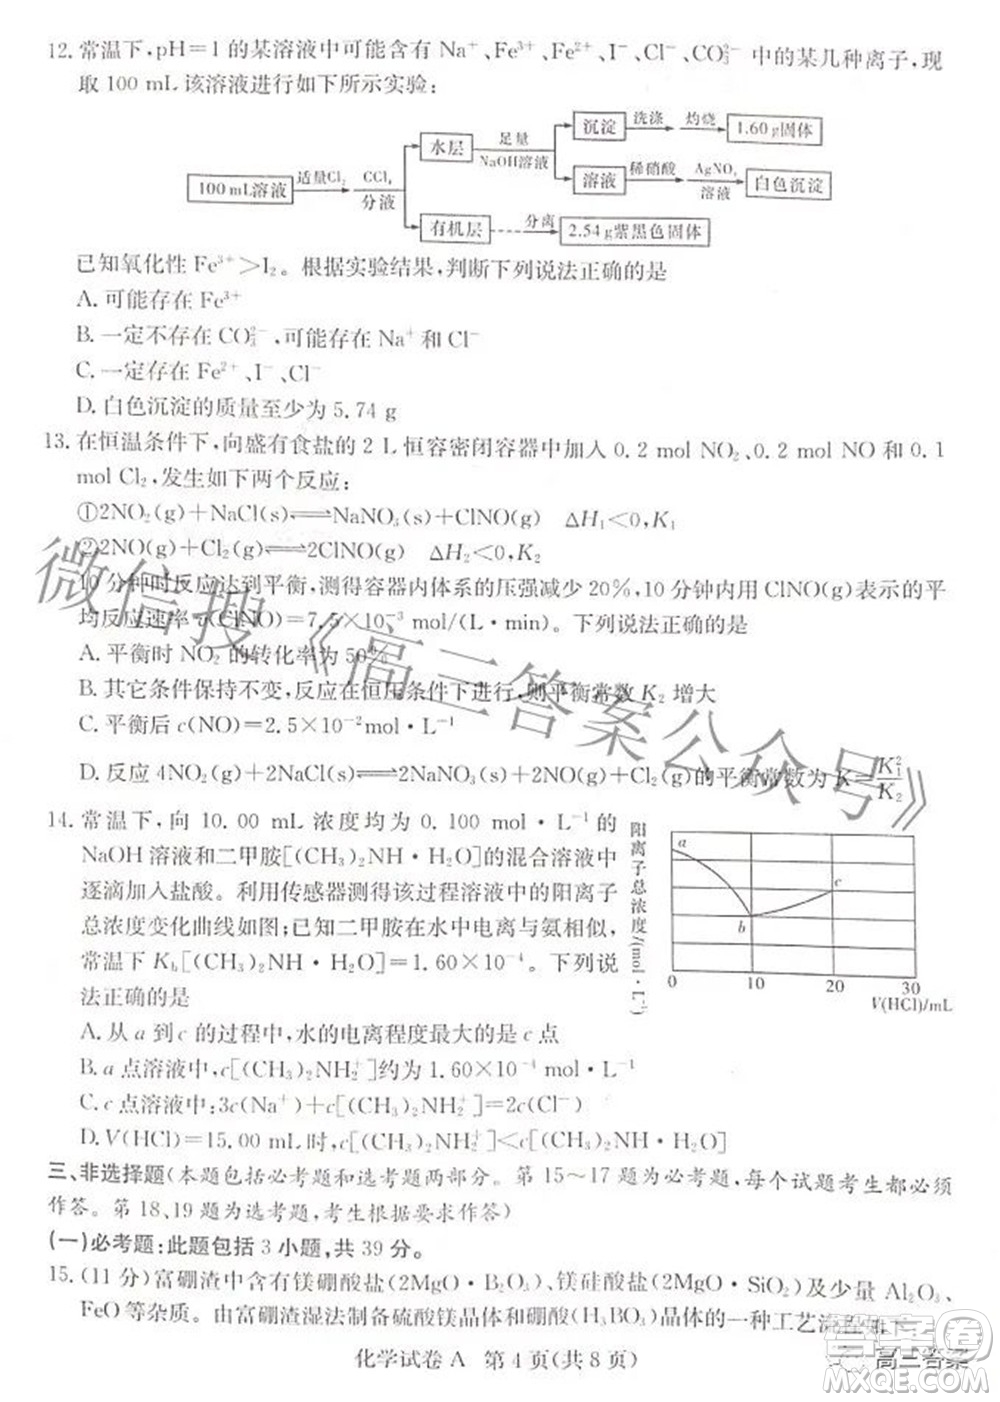 12. 常温下,pH=1 的某溶液中可能含有 Na⁺、Fe³⁺、Fe²⁺、I⁻、Cl⁻、CO₃²⁻ 中的某几种离子,现
取 100 mL 该溶液进行如下所示实验:
100 mL溶液 适量Cl₂ CCl₄ 分液
水层 足量 NaOH溶液
沉淀 洗涤 灼烧 1.60 g固体
溶液 稀硝酸 AgNO₃ 溶液 白色沉淀
有机层 分离 2.54 g紫黑色固体
已知氧化性 Fe³⁺>I₂。根据实验结果,判断下列说法正确的是
A. 可能存在 Fe³⁺
B. 一定不存在 CO₃²⁻,可能存在 Na⁺ 和 Cl⁻
C. 一定存在 Fe²⁺、I⁻、Cl⁻
D. 白色沉淀的质量至少为 5.74 g
13. 在恒温条件下,向盛有食盐的 2 L 恒容密闭容器中加入 0.2 mol NO₂、0.2 mol NO 和 0.1
mol Cl₂,发生如下两个反应:
①2NO₂(g)+NaCl(s)⇌NaNO₃(s)+ClNO(g) ΔH₁<0,K₁
②2NO(g)+Cl₂(g)⇌2ClNO(g) ΔH₂<0,K₂
10 分钟时反应达到平衡,测得容器内体系的压强减少 20%,10 分钟内用 ClNO(g)表示的平
均反应速率 v(ClNO)=7.5×10⁻³ mol/(L·min)。下列说法正确的是
A. 平衡时 NO₂ 的转化率为 50%
B. 其它条件保持不变,反应在恒压条件下进行,则平衡常数 K₂ 增大
C. 平衡后 c(NO)=2.5×10⁻²mol·L⁻¹
D. 反应 4NO₂(g)+2NaCl(s)⇌2NaNO₃(s)+2NO(g)+Cl₂(g)的平衡常数为 K=K₁²/K₂
14. 常温下,向 10.00 mL 浓度均为 0.100 mol·L⁻¹ 的
NaOH 溶液和二甲胺[(CH₃)₂NH·H₂O]的混合溶液中
逐滴加入盐酸。利用传感器测得该过程溶液中的阳离子
总浓度变化曲线如图;已知二甲胺在水中电离与氨相似,
常温下 K_b[(CH₃)₂NH·H₂O]=1.60×10⁻⁴。下列说
法正确的是
阳离子总浓度/(mol·L⁻¹)
a
b
c
0 10 20 30
V(HCl)/mL
A. 从 a 到 c 的过程中,水的电离程度最大的是 c 点
B. a 点溶液中,c[(CH₃)₂NH₂⁺]约为 1.60×10⁻⁴ mol·L⁻¹
C. c 点溶液中:3c(Na⁺)+c[(CH₃)₂NH₂⁺]=2c(Cl⁻)
D. V(HCl)=15.00 mL 时,c[(CH₃)₂NH₂⁺]<c[(CH₃)₂NH·H₂O]
三、非选择题(本题包括必考题和选考题两部分。第 15~17 题为必考题,每个试题考生都必须
作答。第 18、19 题为选考题,考生根据要求作答)
(一)必考题:此题包括 3 小题,共 39 分。
15. (11 分)富硼渣中含有镁硼酸盐(2MgO·B₂O₃)、镁硅酸盐(2MgO·SiO₂)及少量 Al₂O₃、
FeO 等杂质。由富硼渣湿法制备硫酸镁晶体和硼酸(H₃BO₃)晶体的一种工艺流程如下
化学试卷 A 第 4 页(共 8 页)
微信搜《高三答案公众号》
高三答案
答案圈
MXQE.COM